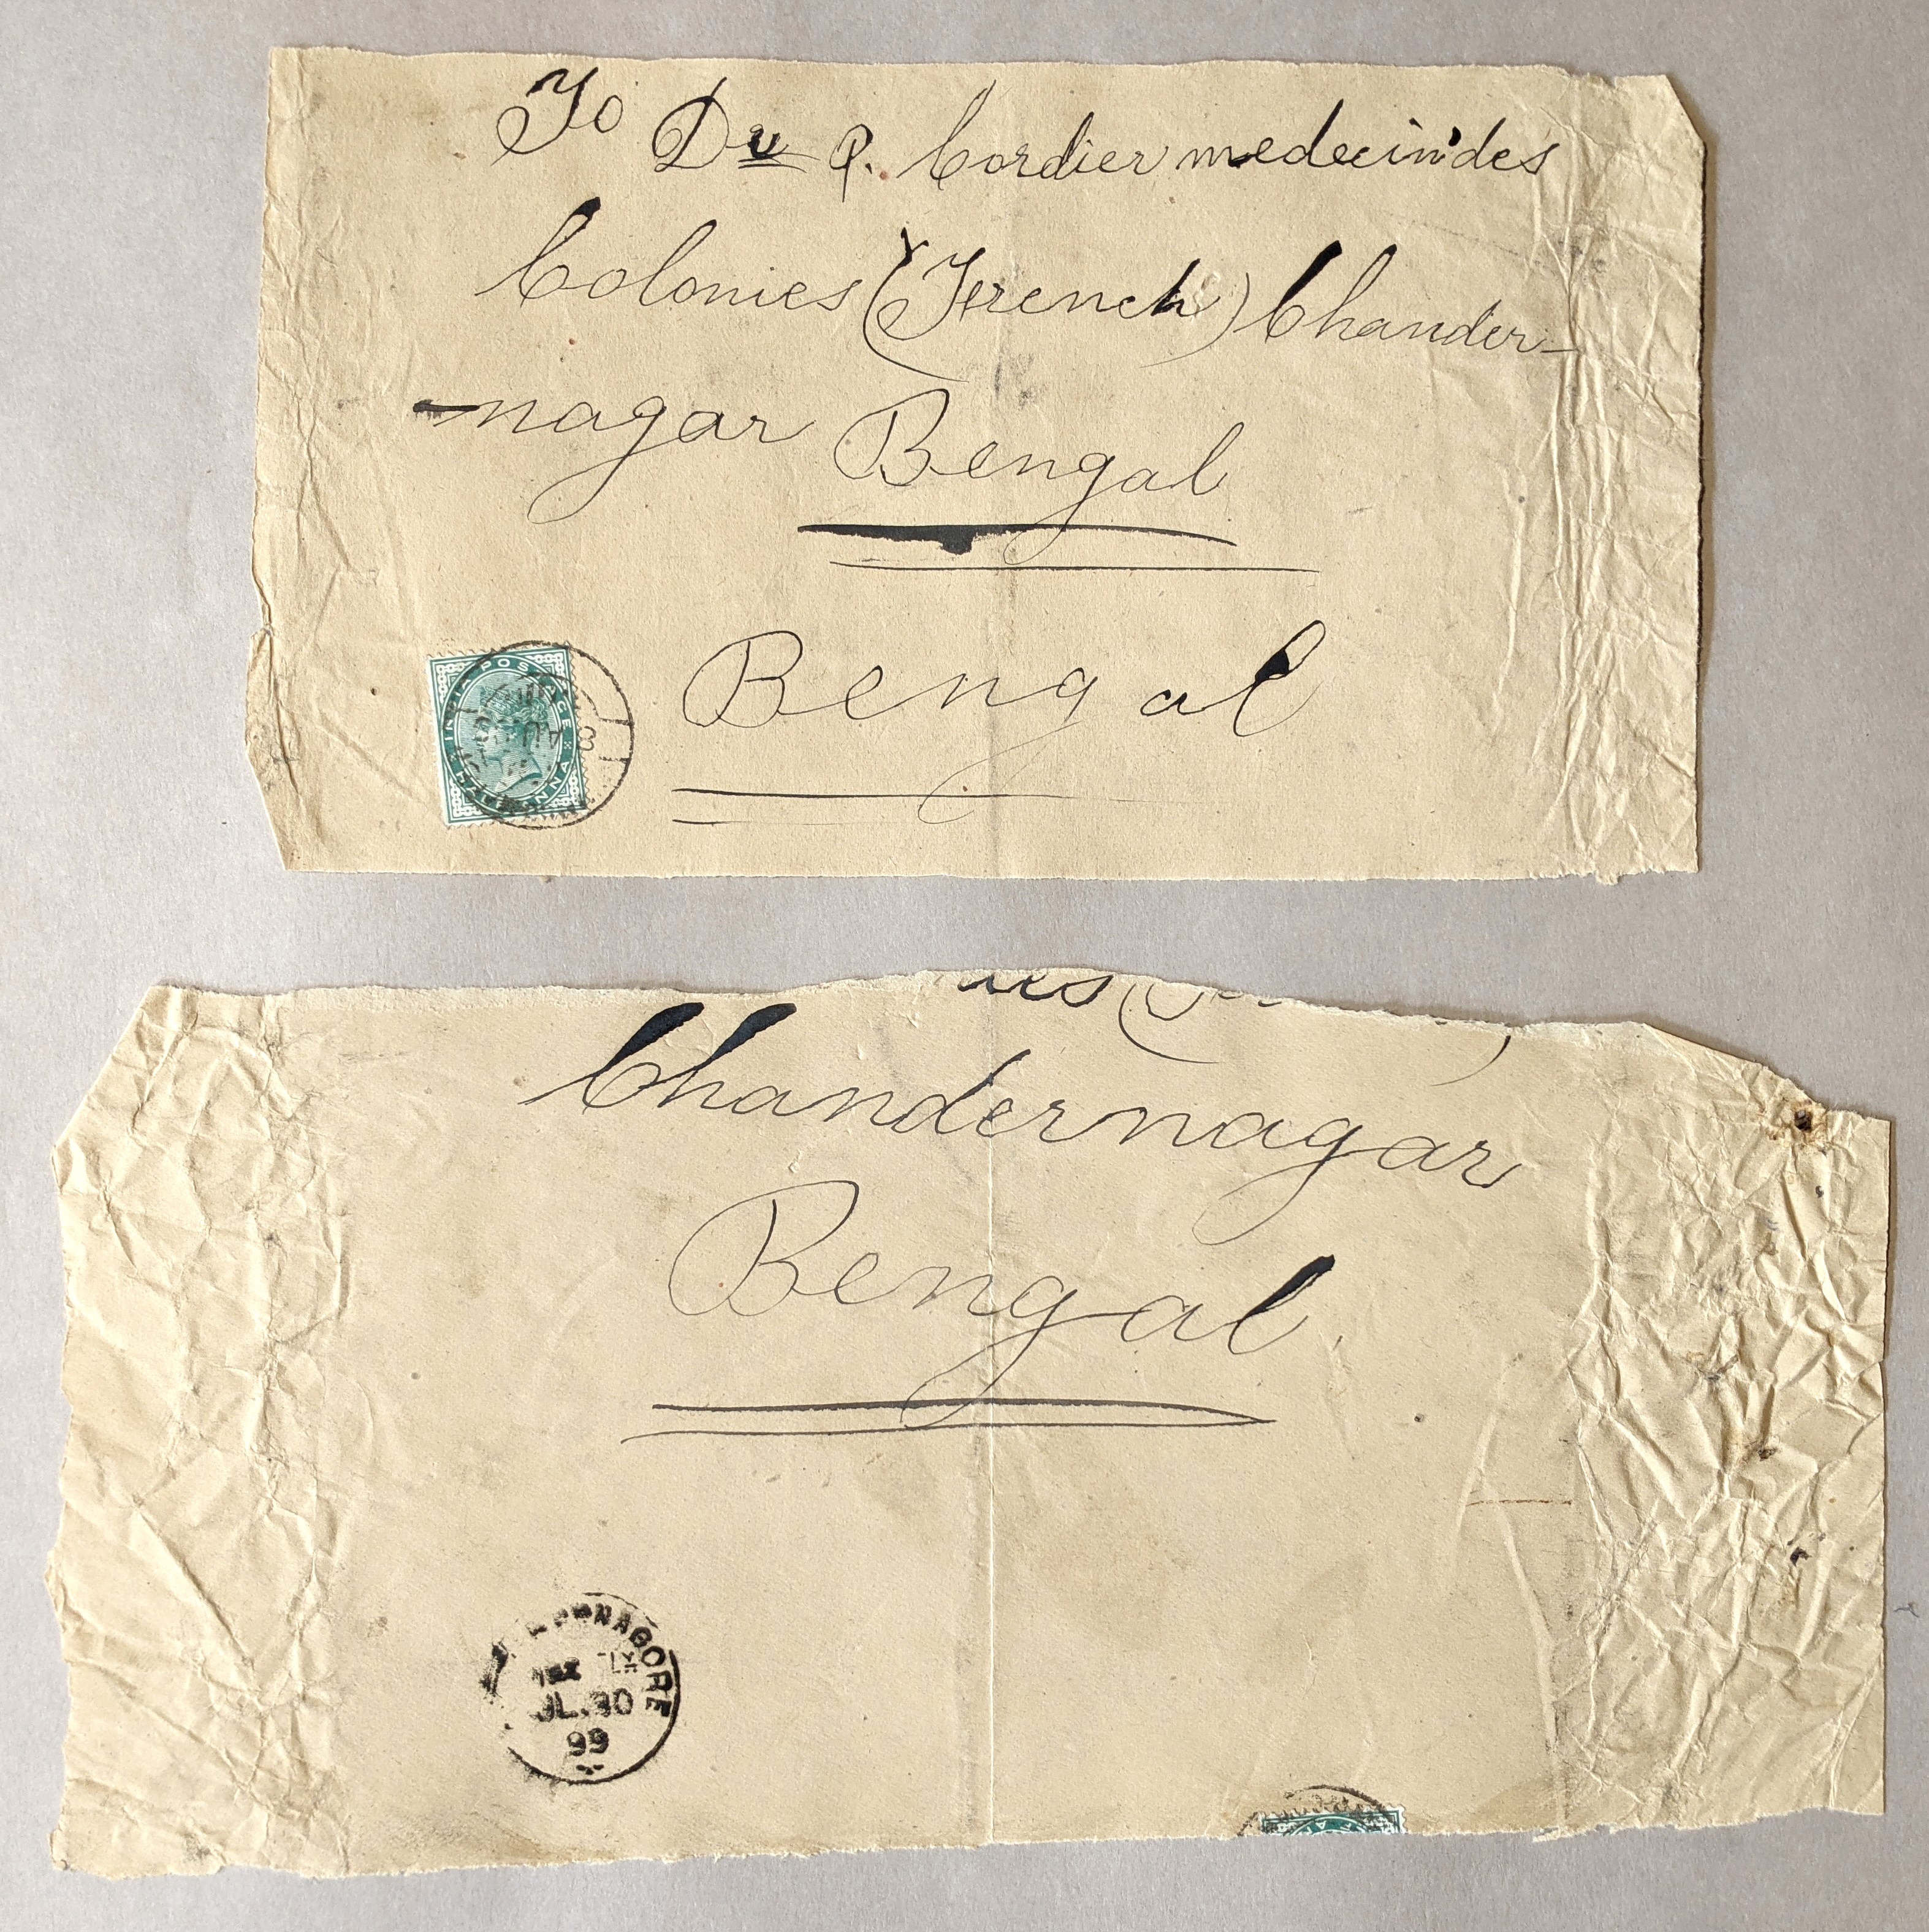 To Dr P. Cordier medecin des
Colonies (French) Chander-
-nagar Bengal
Bengal
INDIA POSTAGE
HALF ANNA
Chandernagar
Bengal
NAGORE
JL.30
99